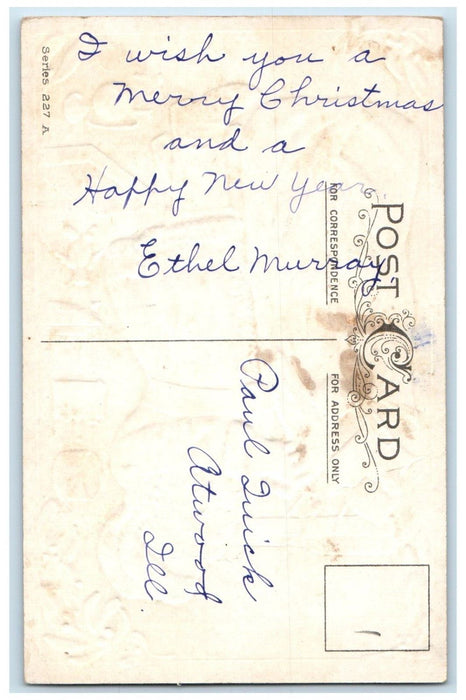 I wish you a
Merry Christmas
and a
Happy New Year.
Ethel Murray
Series 227 A
POST CARD
FOR CORRESPONDENCE
FOR ADDRESS ONLY
Paul Quick
Atwood
Ill.